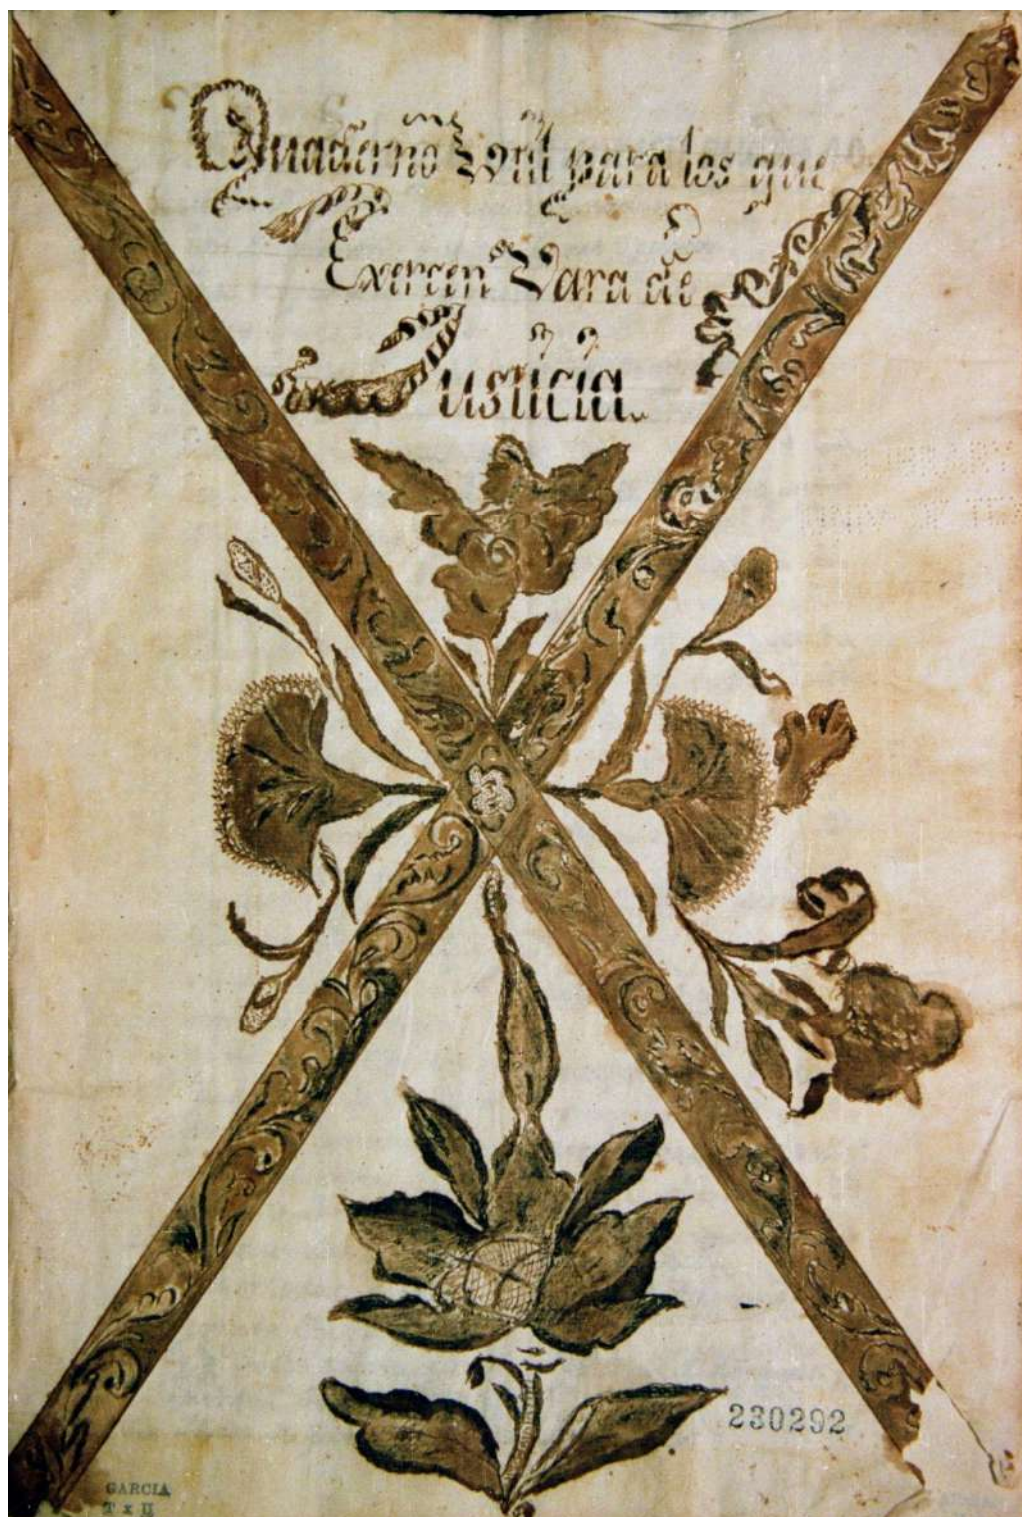 Quaderno Vtil para los que
Exercen Vara de
Justicia
230292
GARCIA
T x II